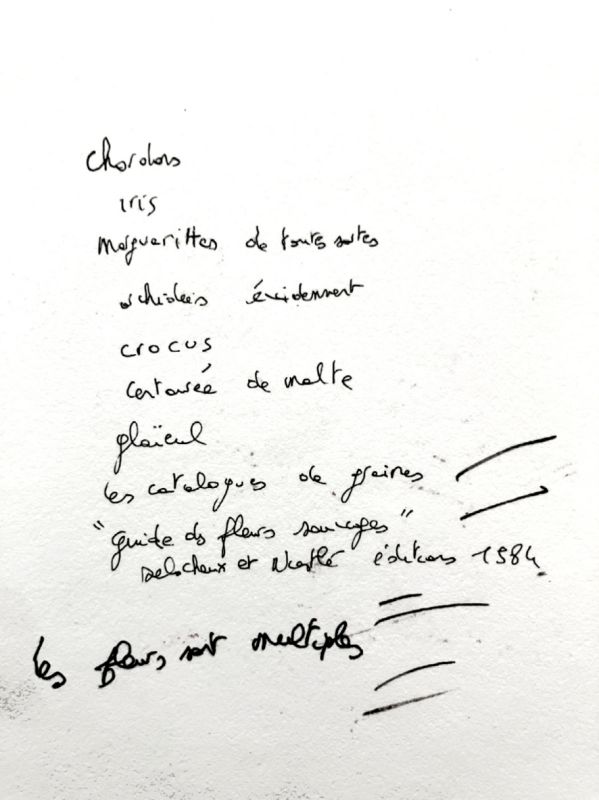 Chardons
iris
Marguerittes de toutes sortes
orchidées évidemment
crocus
Centaurée de malte
glaïeul
les catalogues de graines
"guide des fleurs sauvages"
Delachaux et Niestlé éditions 1984
les fleurs sont multiples